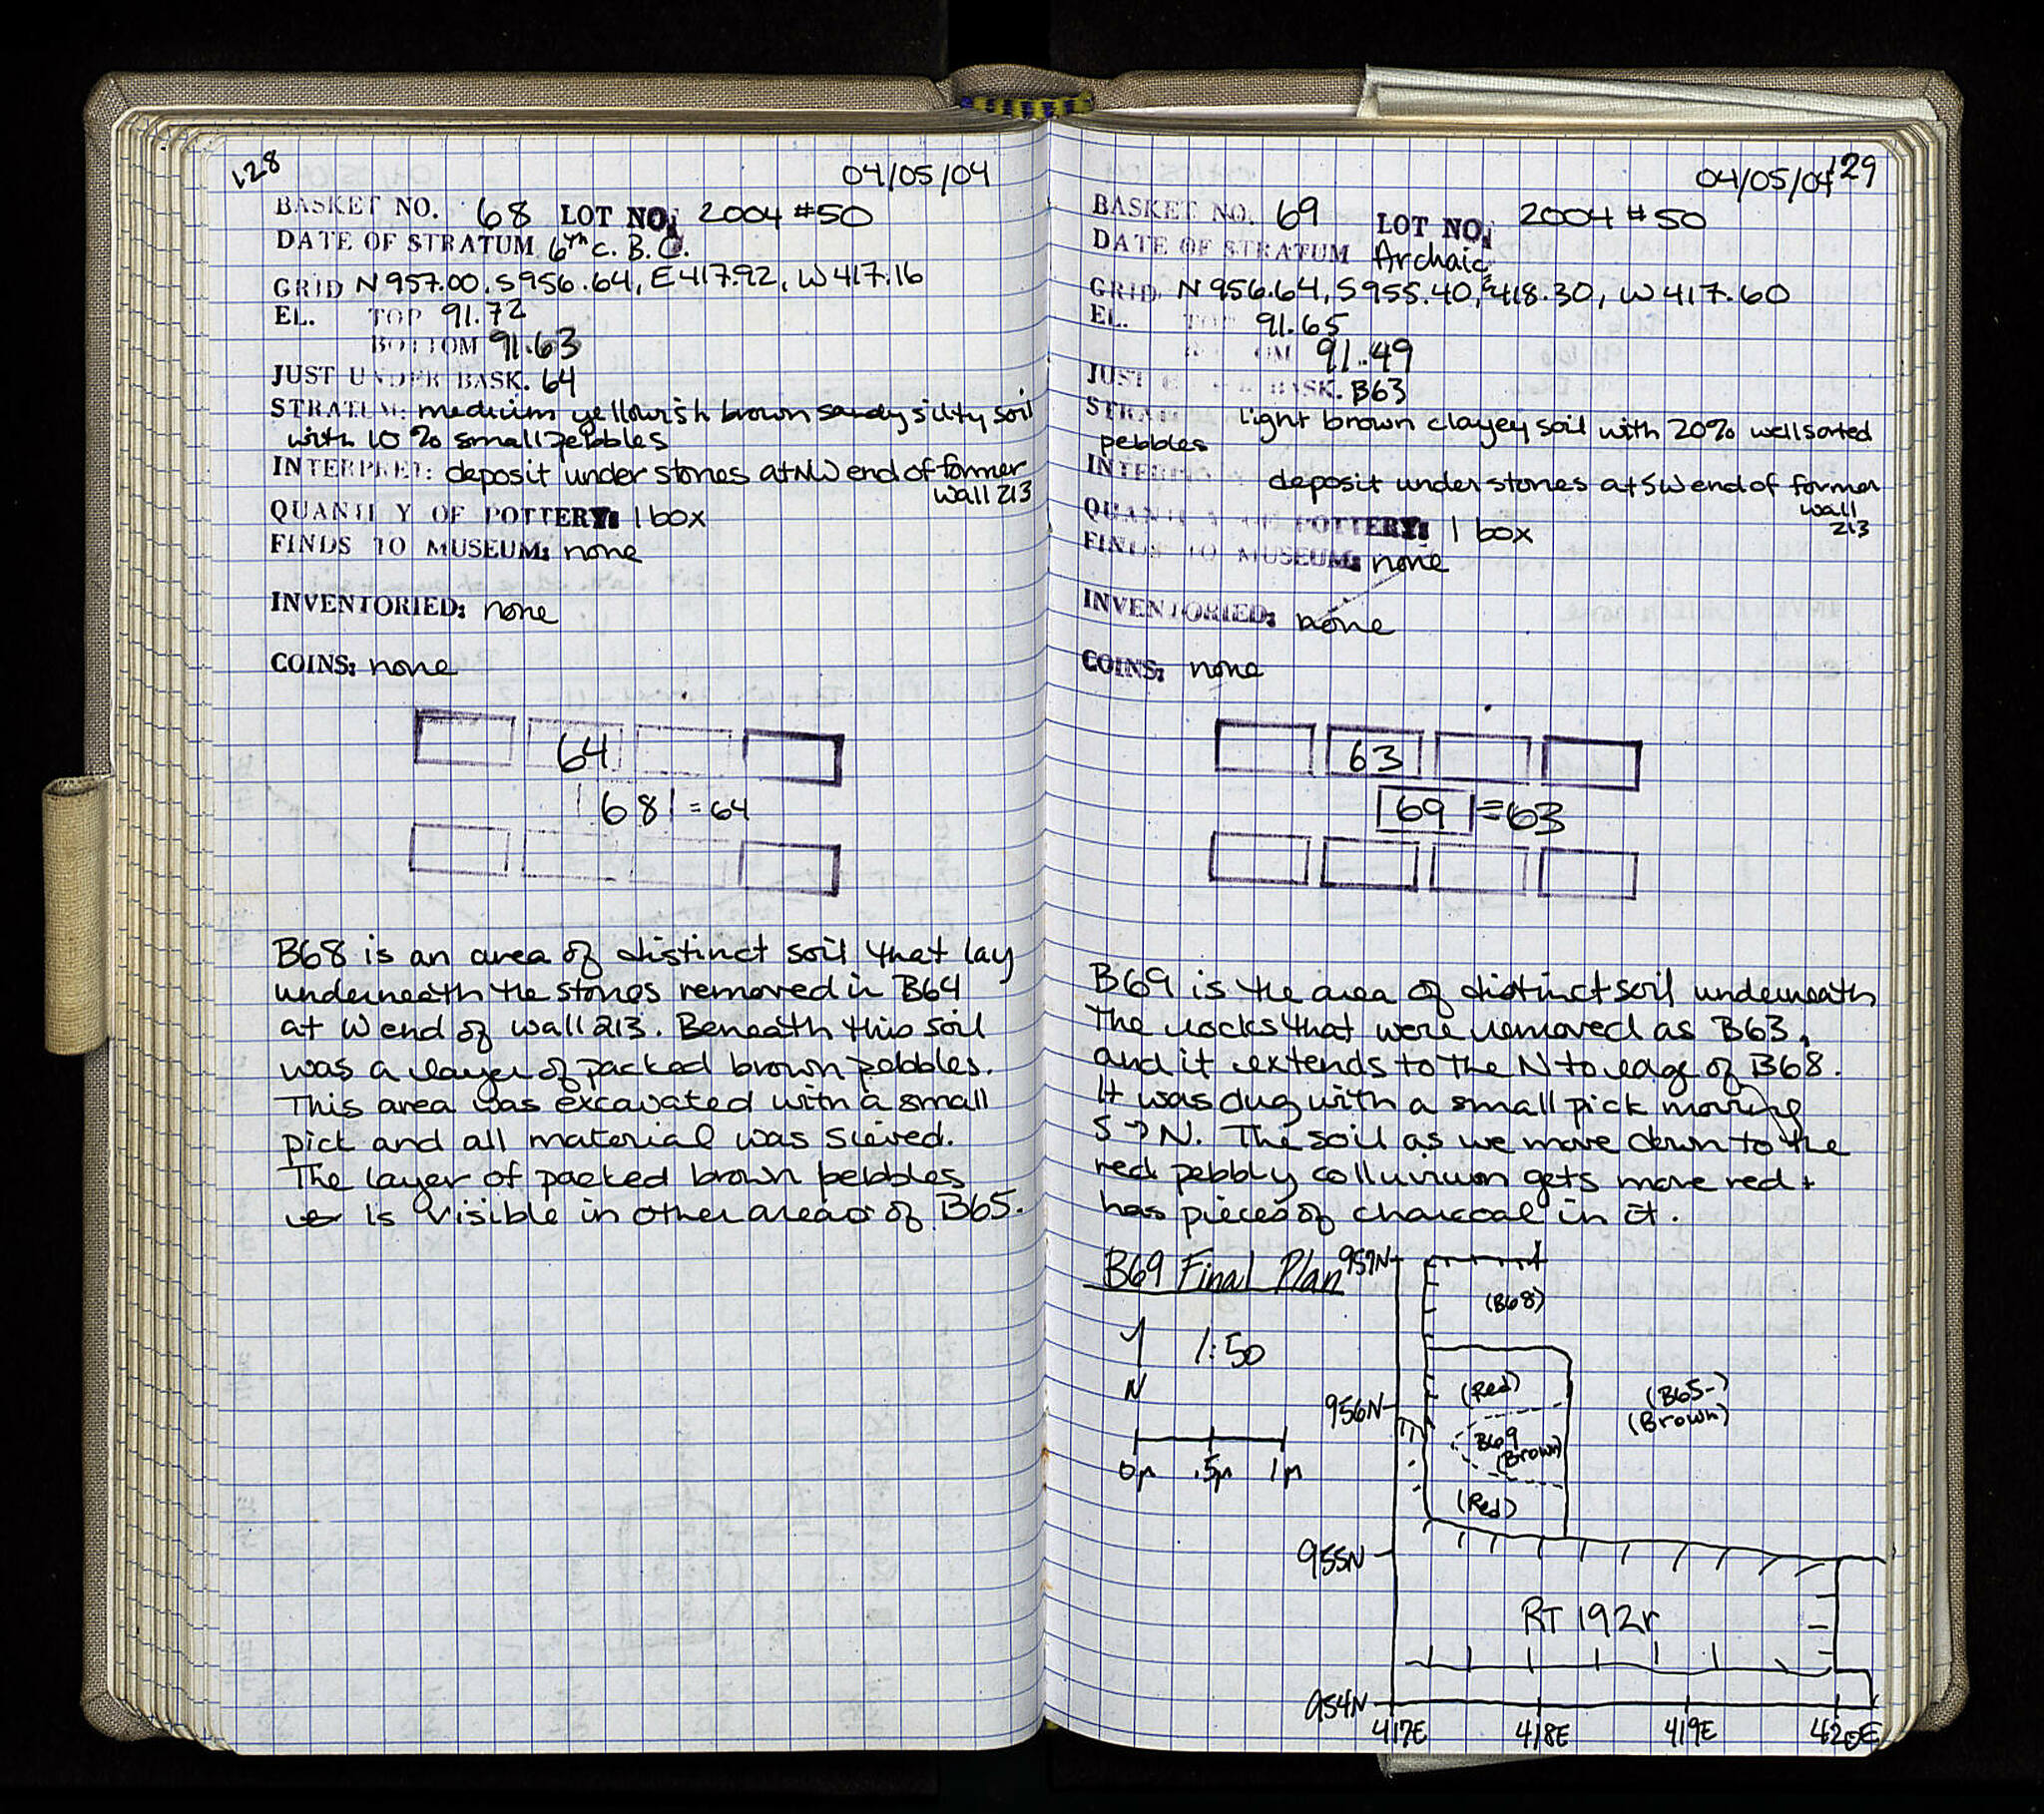 128
04/05/04
BASKET NO. 68 LOT NO. 2004 #50
DATE OF STRATUM 6th c. B.C.
GRID N957.00, S956.64, E417.92, W417.16
EL. TOP 91.72
BOTTOM 91.63
JUST UNDER BASK. 64
STRATUM: medium yellowish brown sandy silty soil
with 10% small pebbles
INTERPRET: deposit under stones at NW end of former
wall 213
QUANTITY OF POTTERY: 1 box
FINDS TO MUSEUM: none
INVENTORIED: none
COINS: none
64
68 = 64
B68 is an area of distinct soil that lay
underneath the stones removed in B64
at W end of wall 213. Beneath this soil
was a layer of packed brown pebbles.
This area was excavated with a small
pick and all material was sieved.
The layer of packed brown pebbles
is visible in other areas of B65.
129
04/05/04
BASKET NO. 69 LOT NO. 2004 #50
DATE OF STRATUM Archaic
GRID N956.64, S955.40, E418.30, W417.60
EL. TOP 91.65
BOTTOM 91.49
JUST UNDER BASK. B63
STRATUM: light brown clayey soil with 20% well sorted
pebbles
INTERPRET: deposit under stones at SW end of former
wall
213
QUANTITY OF POTTERY: 1 box
FINDS TO MUSEUM: none
INVENTORIED: none
COINS: none
63
69 = 63
B69 is the area of distinct soil underneath
the rocks that were removed as B63,
and it extends to the N to edge of B68.
It was dug with a small pick moving
S→N. The soil as we move down to the
red pebbly colluvium gets more red +
has pieces of charcoal in it.
B69 Final Plan
1:50
N
0m .5m 1m
957N
(B68)
(Red)
956N
(B65)
(Brown)
B69
(Brown)
(Red)
955N
RT 192r
954N
417E 418E 419E 420E